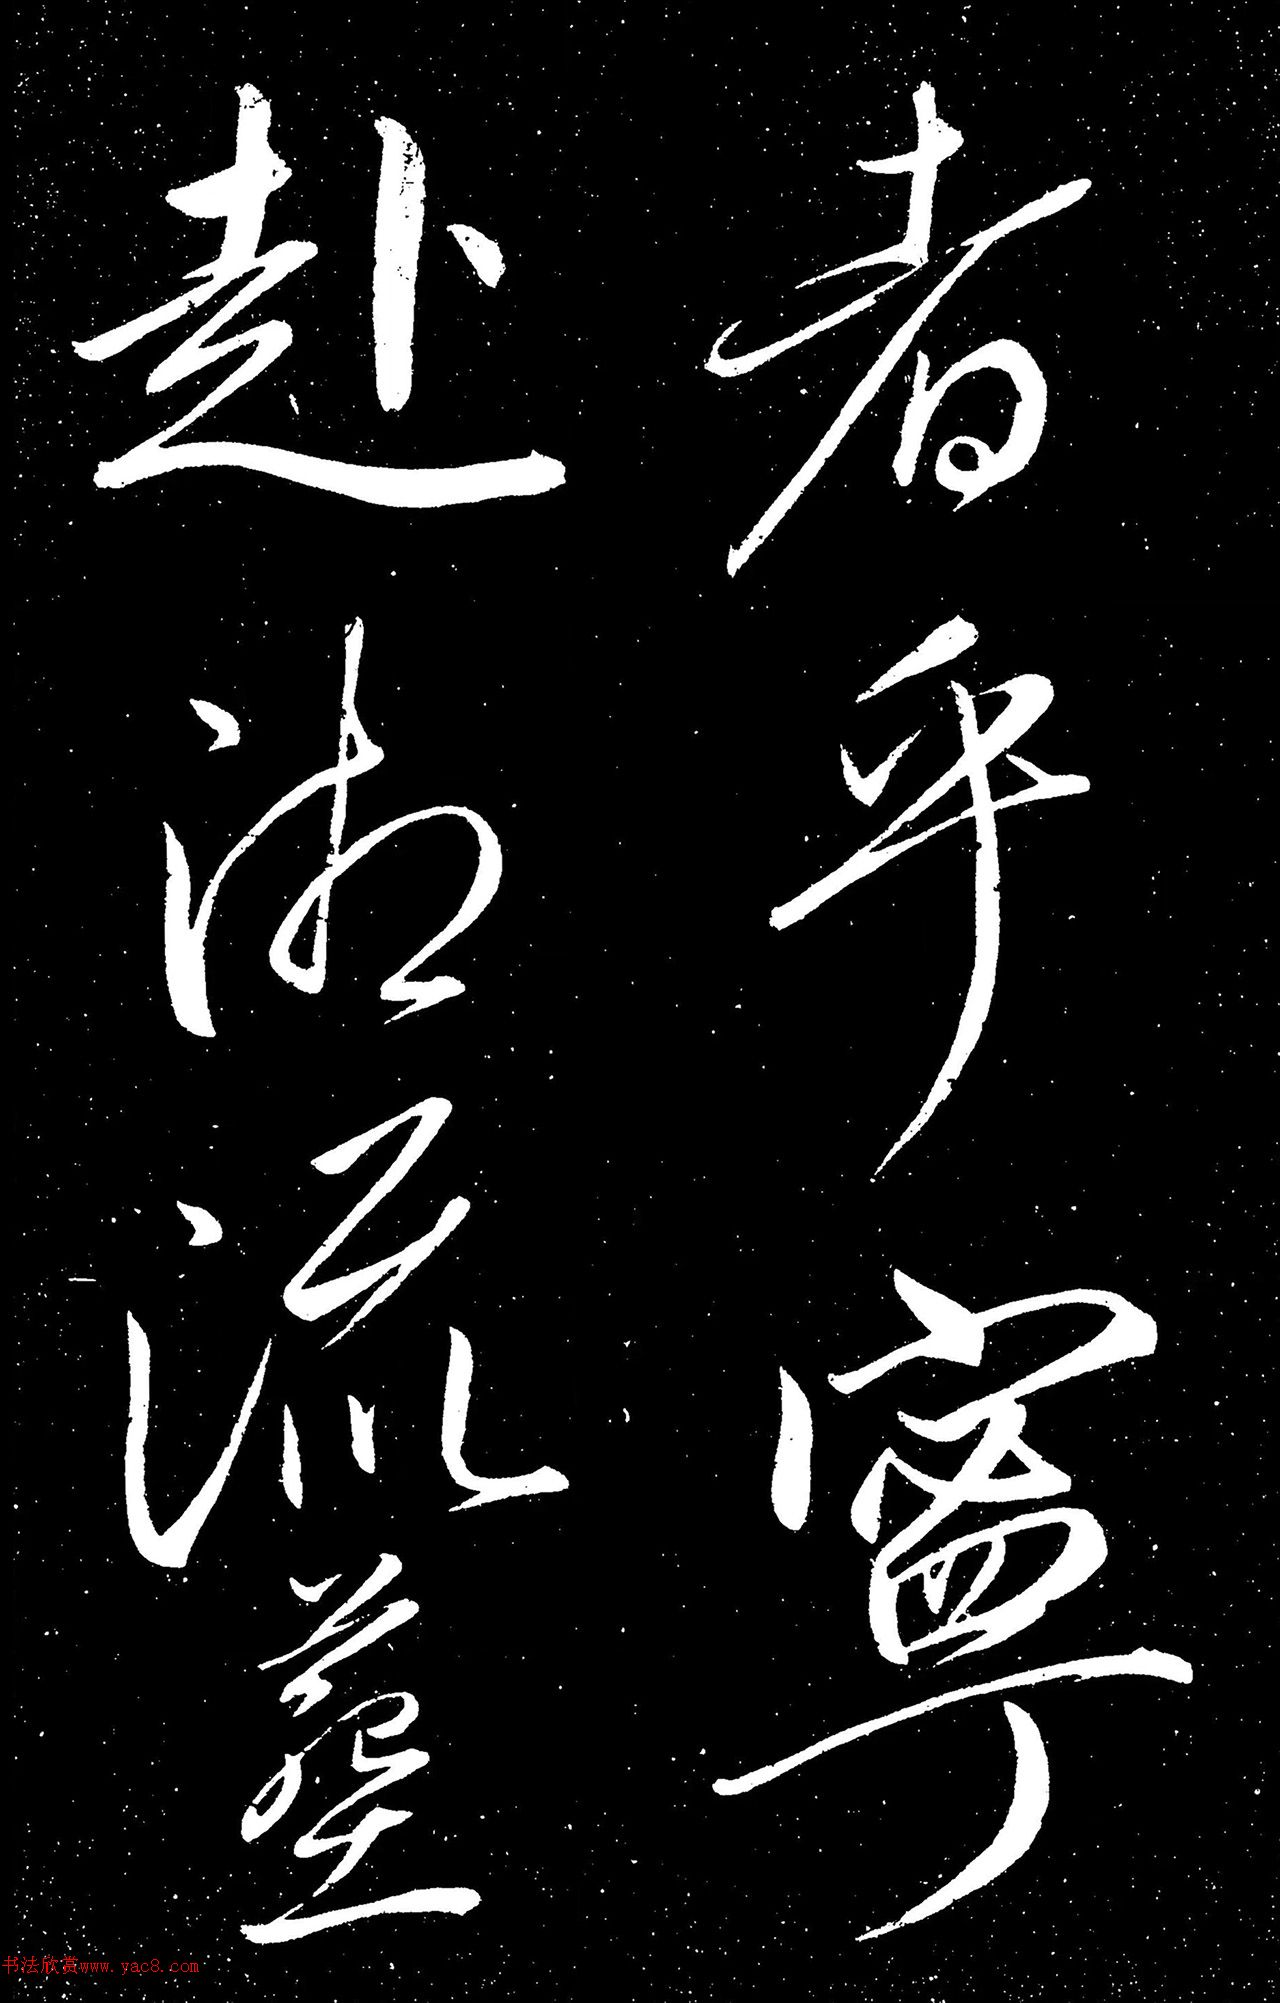 者乎寧
赴湘流葬
书法欣赏www.yac8.com